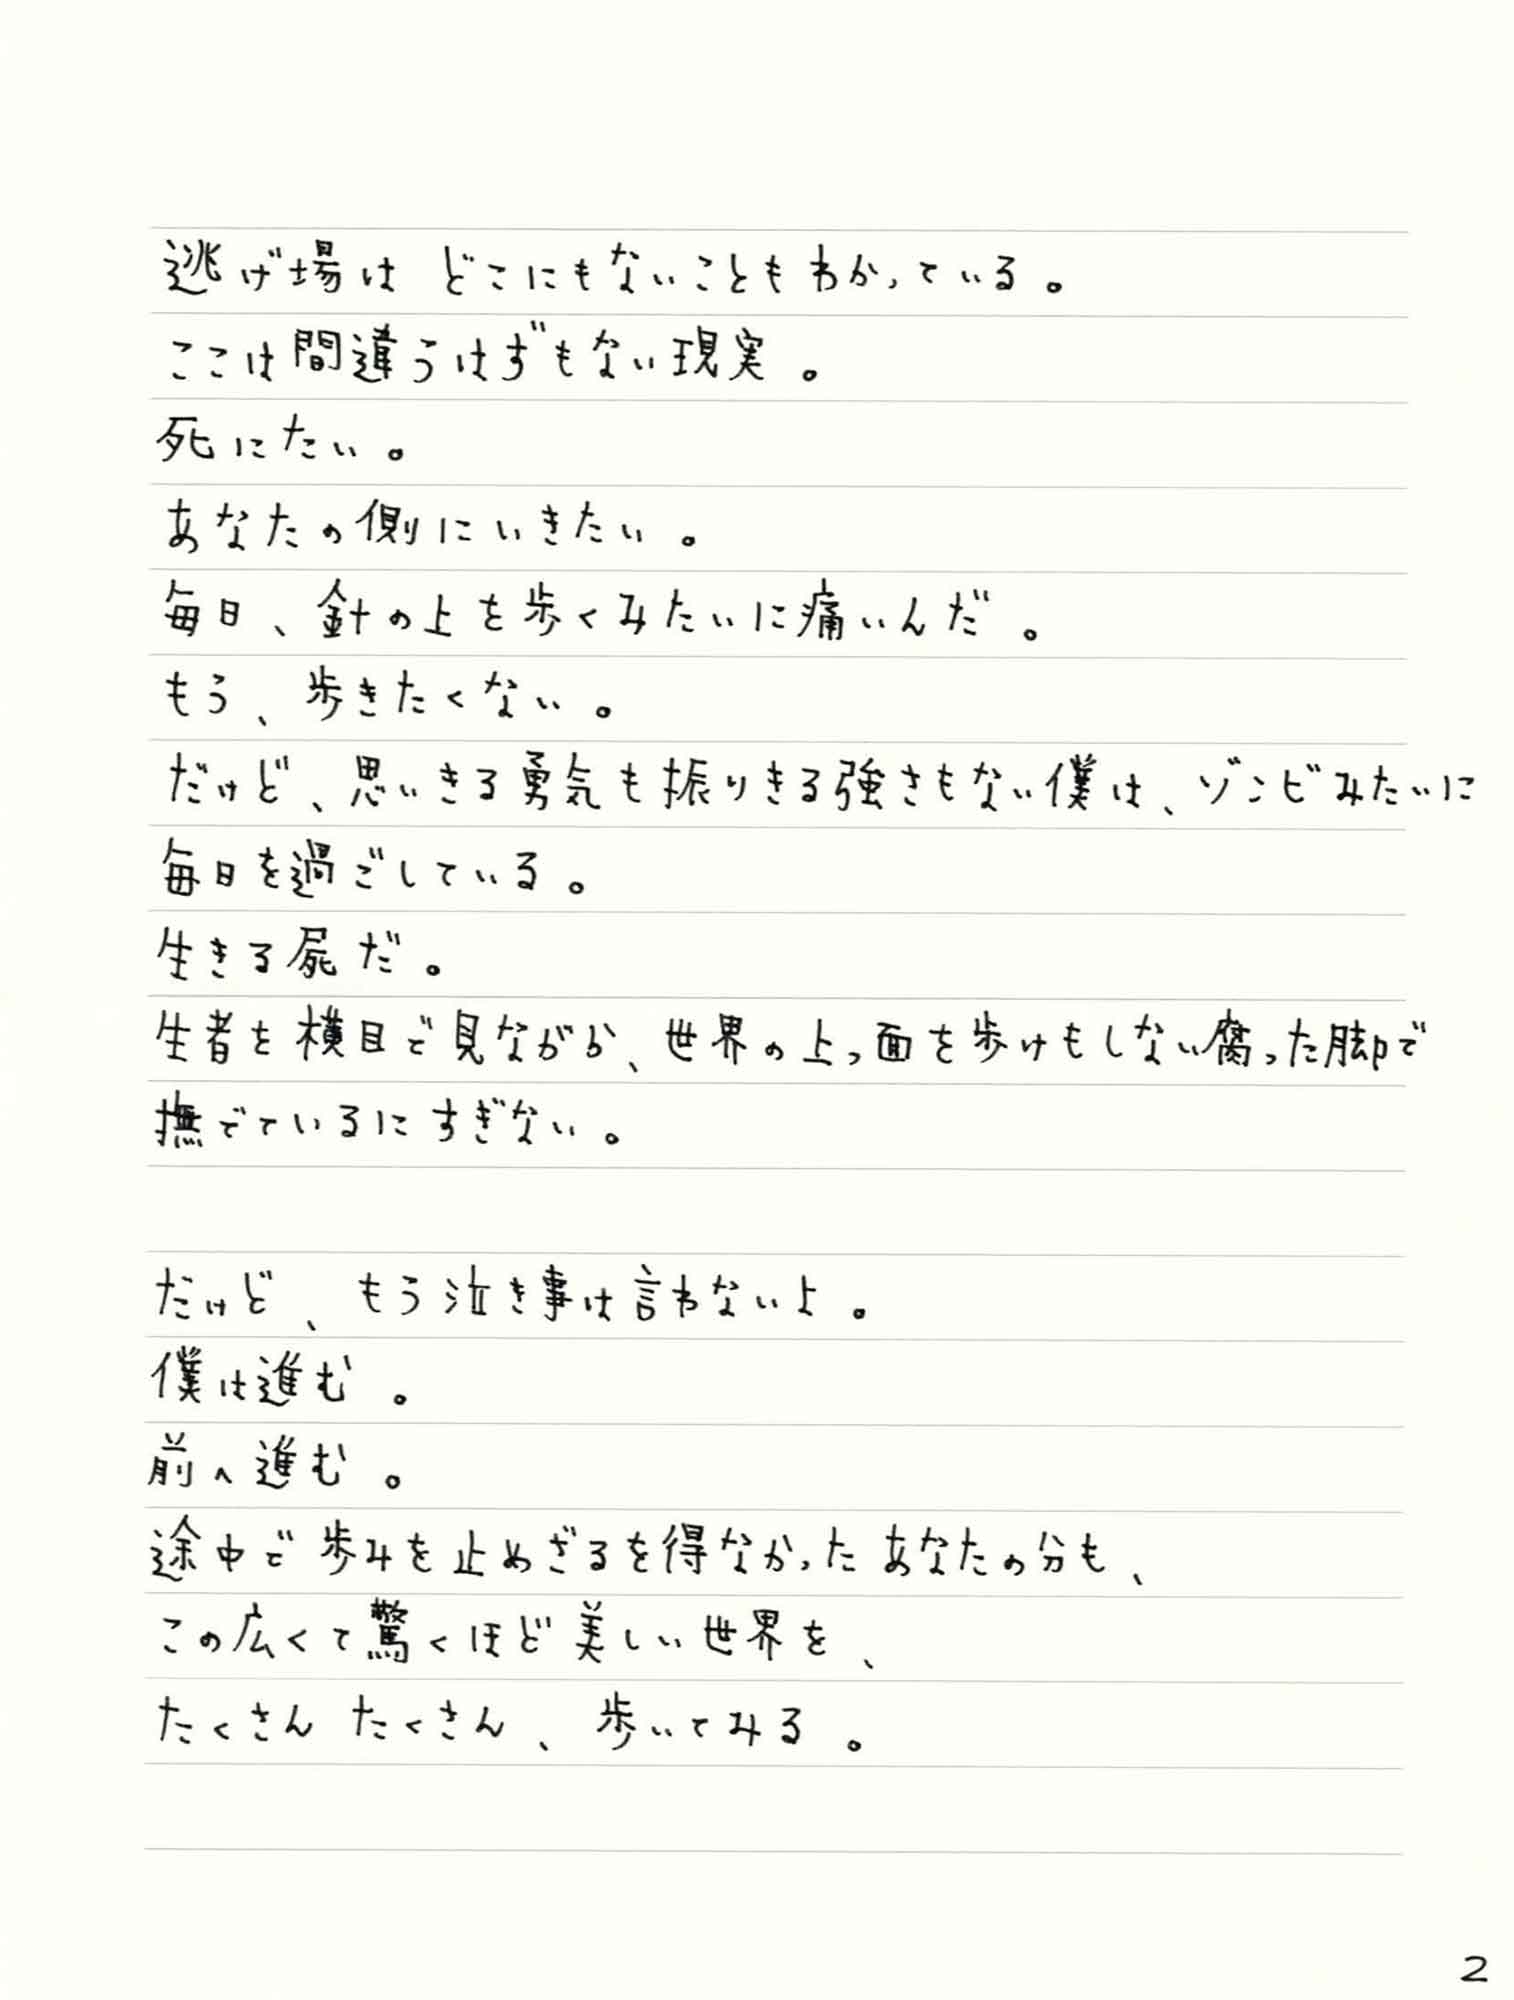 逃げ場は どこにもないこともわかっている。
ここは間違うはずもない現実。
死にたい。
あなたの側にいきたい。
毎日、針の上を歩くみたいに痛いんだ。
もう、歩きたくない。
だけど、思いきる勇気も振りきる強さもない僕は、ゾンビみたいに
毎日を過ごしている。
生きる屍だ。
生者を横目で見ながら、世界の上っ面を歩けもしない腐った脚で
撫でているにすぎない。
だけど、もう泣き事は言わないよ。
僕は進む。
前へ進む。
途中で歩みを止めざるを得なかったあなたの分も、
この広くて驚くほど美しい世界を、
たくさん たくさん、歩いてみる。
2